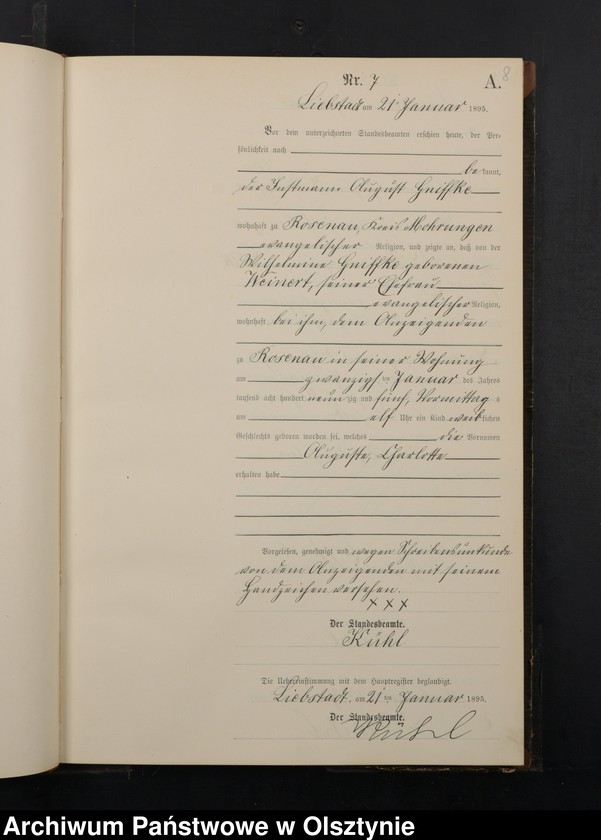 Nr. 7
A. 8
Liebstadt am 21 Januar 1895.
Vor dem unterzeichneten Standesbeamten erschien heute, der Per-
sönlichkeit nach
bekannt,
der Instmann August Gniffke
wohnhaft zu Rosenau, Kreis Mohrungen
evangelischer Religion, und zeigte an, daß von der
Wilhelmine Gniffke geborenen
Weinert, seiner Ehefrau
evangelischer Religion,
wohnhaft bei ihm, dem Anzeigenden
zu Rosenau in seiner Wohnung
am zwanzigsten Januar des Jahres
tausend acht hundert neunzig und fünf, Vormittags
um elf Uhr ein Kind weiblichen
Geschlechts geboren worden sei, welches die Vornamen
Auguste, Charlotte
erhalten habe
Vorgelesen, genehmigt und wegen Schreibensunkunde
von dem Anzeigenden mit seinem
Handzeichen versehen.
x x x
Der Standesbeamte.
Kühl
Die Uebereinstimmung mit dem Hauptregister beglaubigt.
Liebstadt, am 21 ten Januar 1895.
Der Standesbeamte.
Kühl
Archiwum Państwowe w Olsztynie